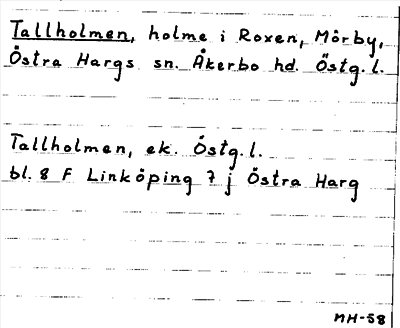 Tallholmen, holme i Roxen, Mörby,
Östra Hargs sn. Åkerbo hd. Östg.l.
Tallholmen, ek. Östg.l.
bl. 8 F Linköping 7 j Östra Harg
MH-58